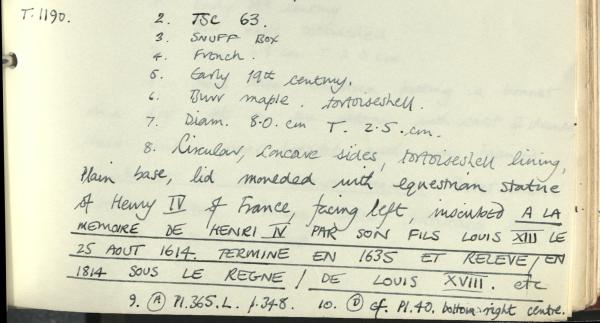 T.1190.
2. TSC 63.
3. SNUFF BOX
4. French.
5. Early 19th century.
6. Burr maple. tortoiseshell.
7. Diam. 8.0.cm T. 2.5.cm.
8. Circular, concave sides, tortoiseshell lining,
plain base, lid moneded with equestrian statue
of Henry IV of France, facing left, inscribed A LA
MEMOIRE DE HENRI IV PAR SON FILS LOUIS XIII LE
25 AOUT 1614. TERMINE EN 1635 ET RELEVE/EN
1814 SOUS LE REGNE / DE LOUIS XVIII. etc
9. (A) Pl.365.L. p.348. 10. (D) cf. Pl.40. bottom right centre.